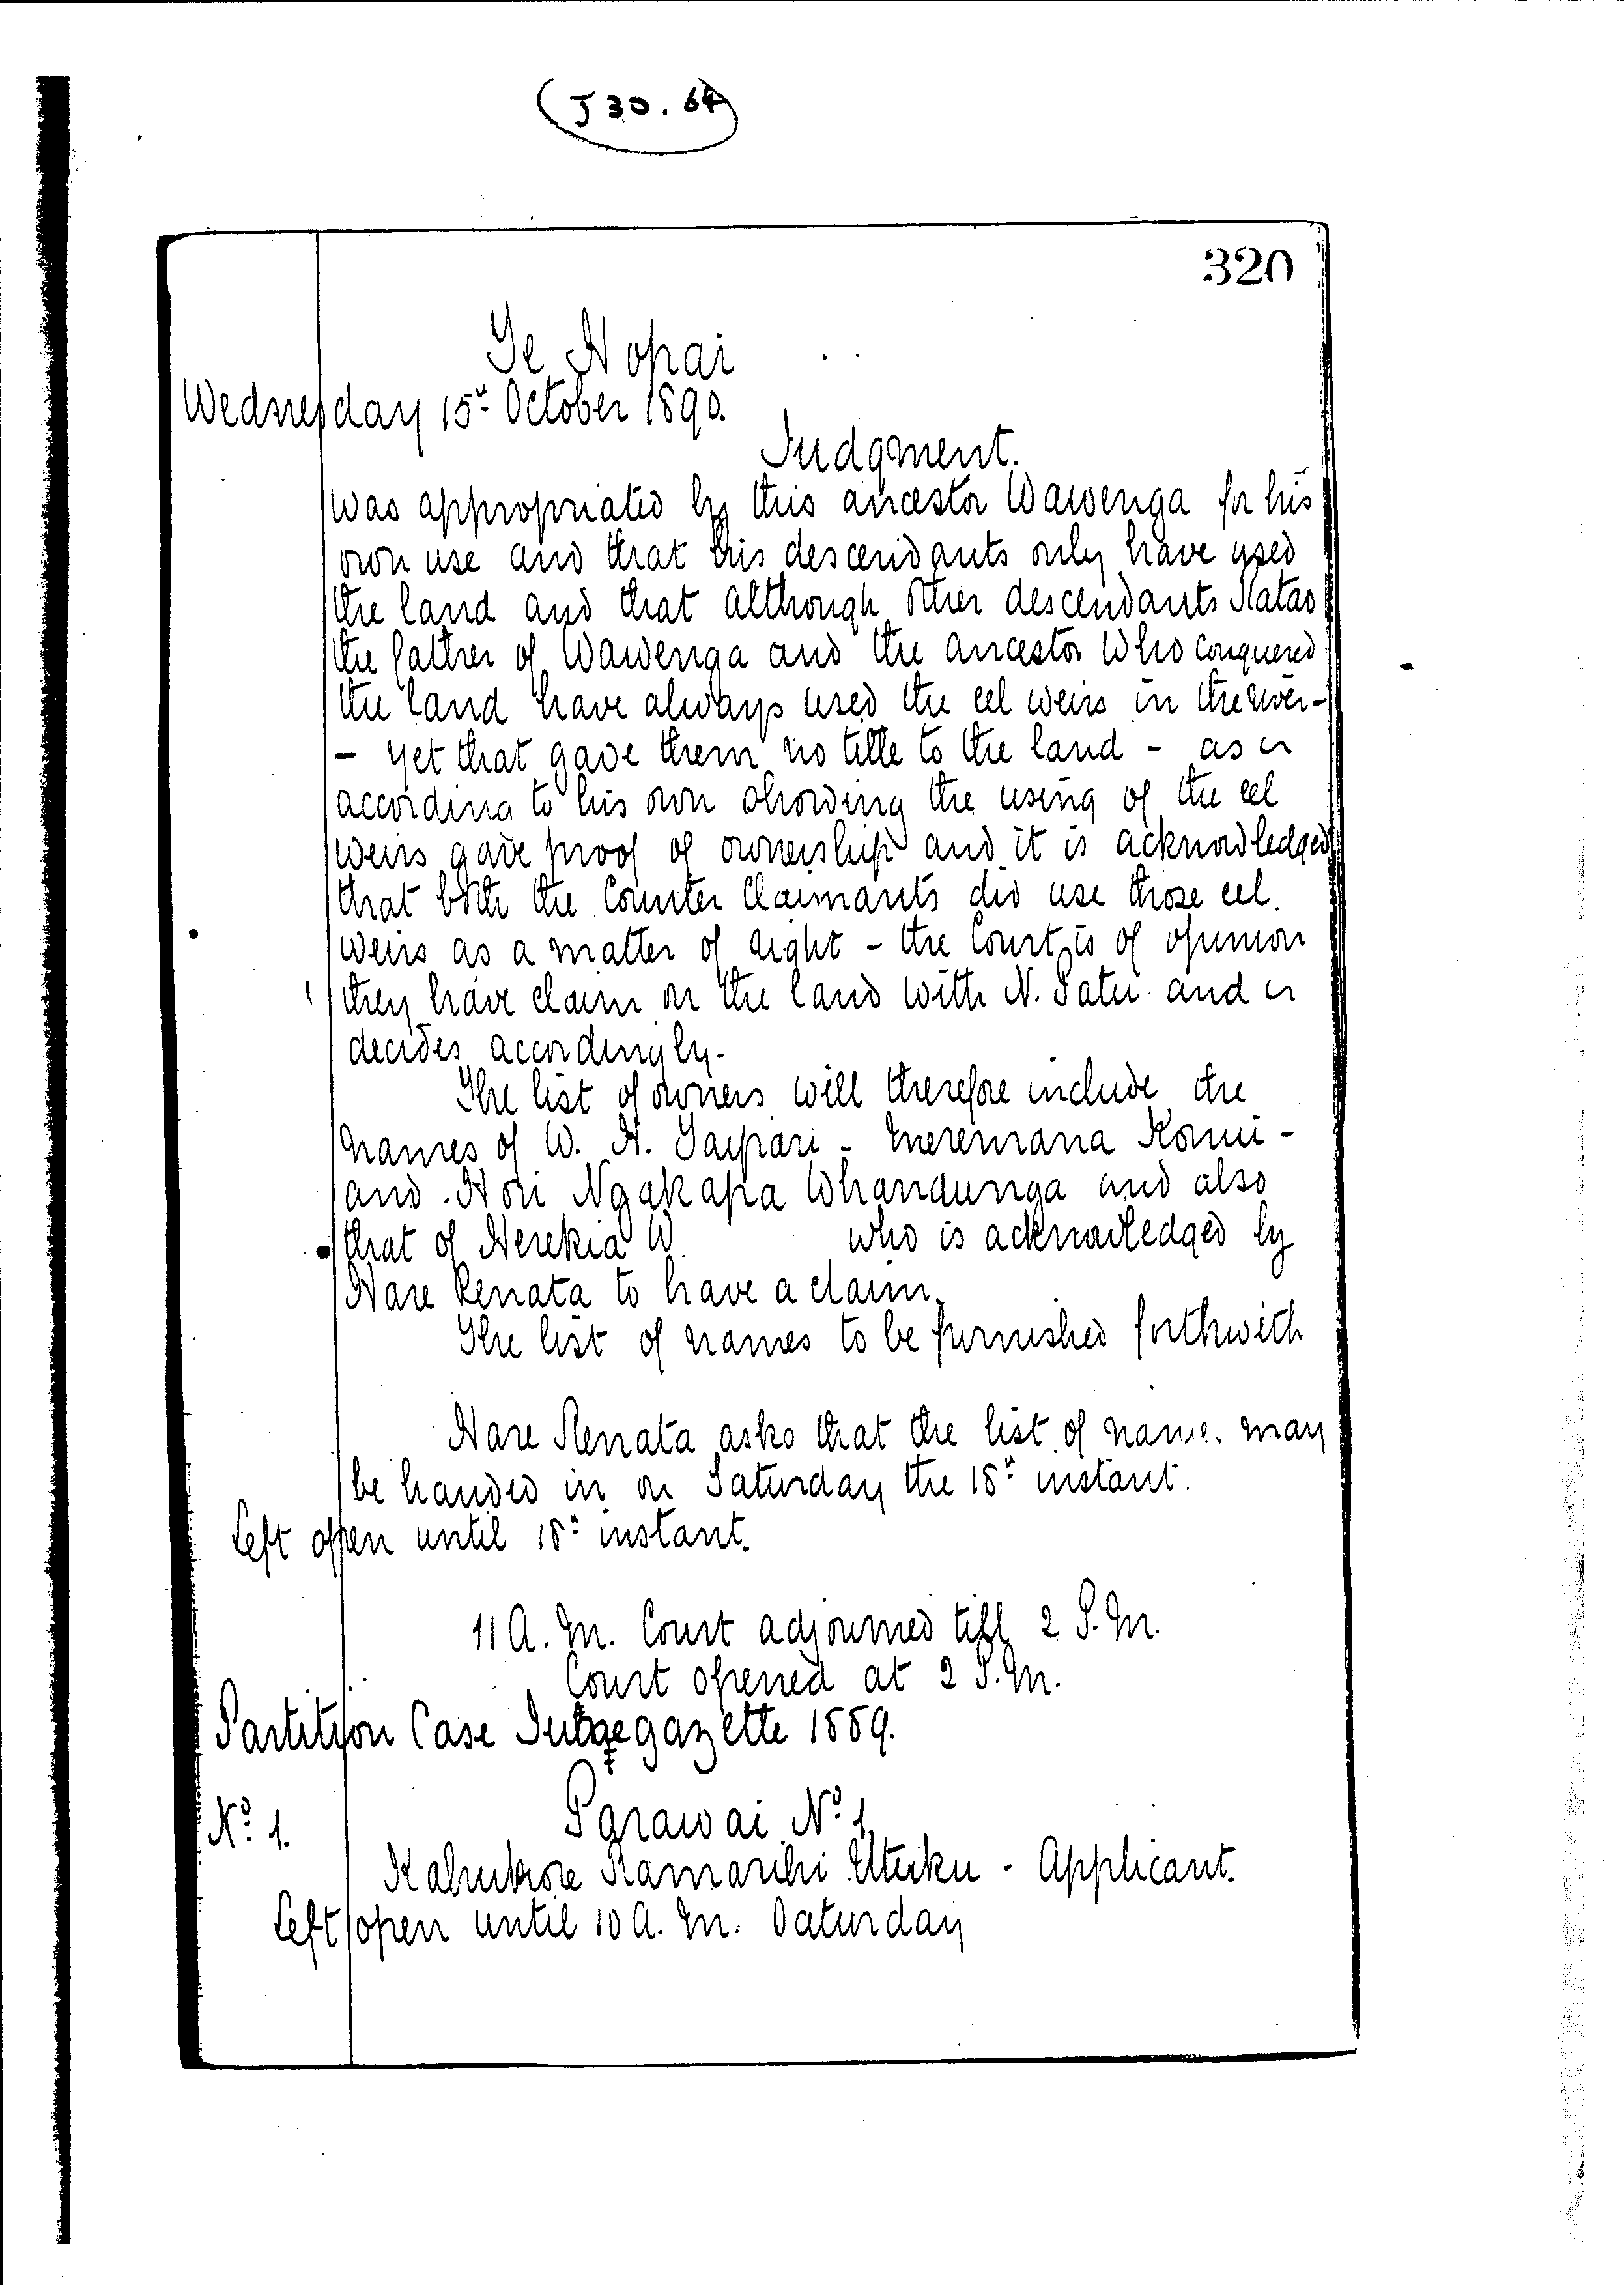 J 30.64
320
Te Hopai
Wednesday 15th October 1890.
Judgment.
was appropriated by this ancestor Wawenga for his
own use and that his descendants only have used
the land and that although other descendants Ratao
the father of Wawenga and the ancestor who conquered
the land have always used the eel weirs in the river-
- yet that gave them no title to the land - as
according to his own showing the using of the eel
weirs gave proof of ownership and it is acknowledged
that both the Counter Claimants did use those eel
weirs as a matter of right - the Court is of opinion
they have claim on the land with N. Patu and
decides accordingly.
The list of owners will therefore include the
names of W. H. Taipari - Meremana Konui -
and Hori Ngakapa Whanaunga and also
that of Herekia W. who is acknowledged by
Hare Renata to have a claim.
The list of names to be furnished forthwith
Hare Renata asks that the list of name. may
be handed in on Saturday the 18th instant.
Left open until 18th instant.
11 A.M. Court adjourned till 2 P.M.
Court opened at 2 P.M.
Partition Case gazette 1889.
No. 1.
Parawai No. 1
Kahukore Kamarihi Utuku - Applicant.
Left open until 10 A.M. Saturday